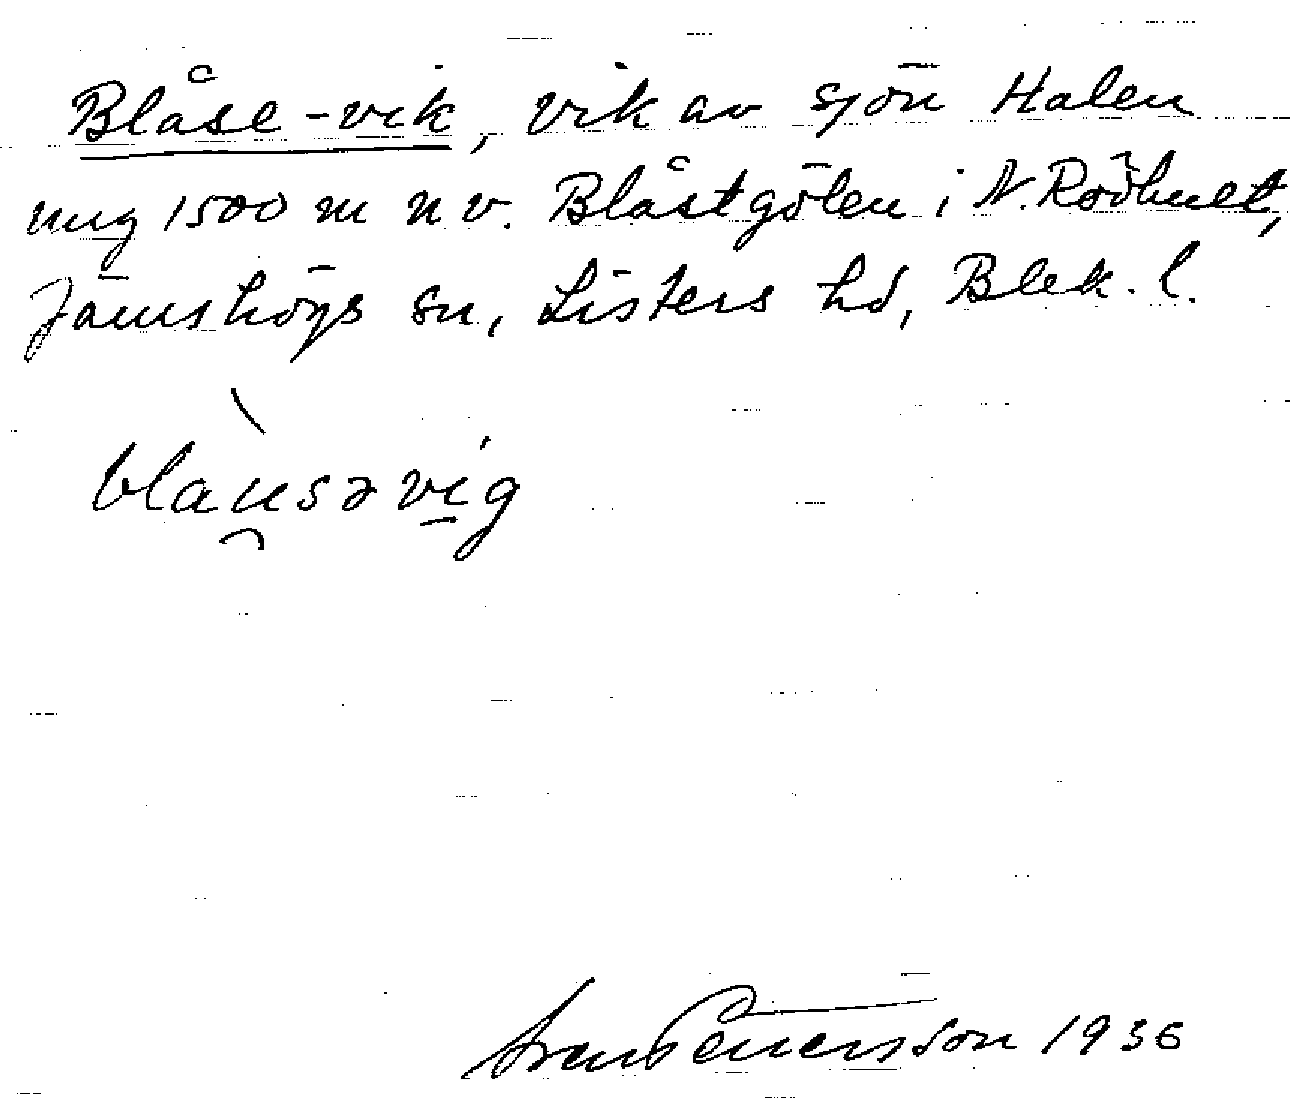 Blåse-vik, vik av sjön Halen
ung 1500 m n v. Blåstgölen i N. Rödhult,
Jämshögs sn, Listers hd, Blek. l.
blau̯səvi̱g
Sven Petersson 1936